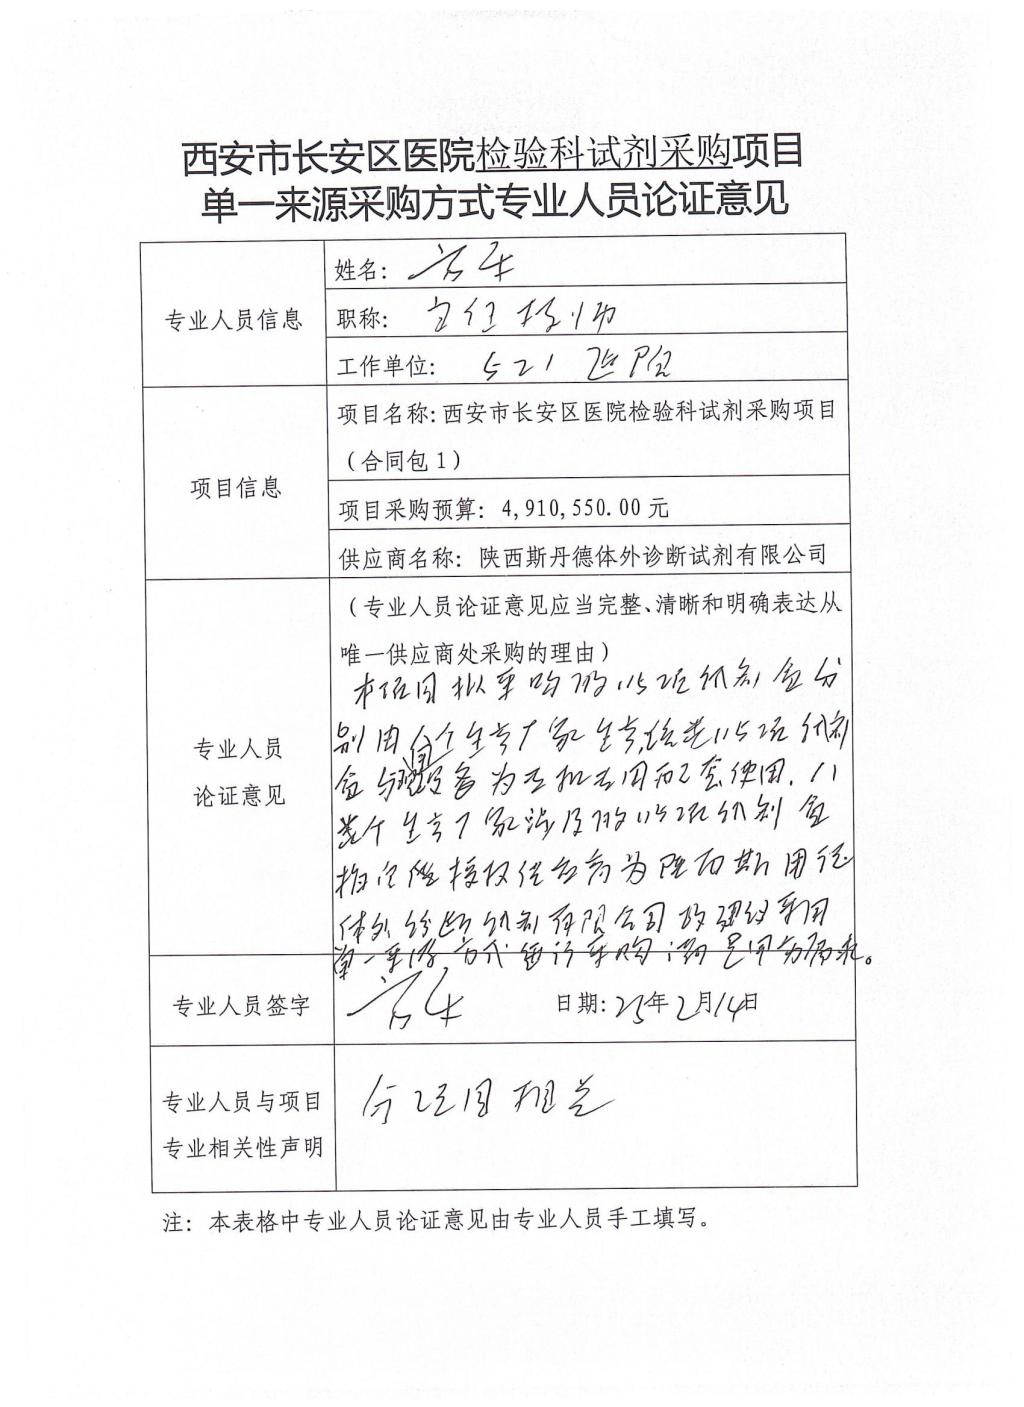 西安市长安区医院检验科试剂采购项目
单一来源采购方式专业人员论证意见
专业人员信息
姓名:
职称: 主任技师
工作单位: 521医院
项目信息
项目名称:西安市长安区医院检验科试剂采购项目
（合同包1）
项目采购预算: 4,910,550.00元
供应商名称: 陕西斯丹德体外诊断试剂有限公司
专业人员
论证意见
（专业人员论证意见应当完整、清晰和明确表达从
唯一供应商处采购的理由）
本项目拟采购的115项试剂盒分
别由 个生产厂家生产, 115项试剂
盒与 设备为专机专用配套使用.
个生产厂家涉及的115项试剂盒
授权供应商为陕西斯丹德
体外诊断试剂有限公司故建议采用
单一来源方式进行采购 满足用户需求。
专业人员签字
日期: 25年2月14日
专业人员与项目
专业相关性声明
与项目相关
注: 本表格中专业人员论证意见由专业人员手工填写。